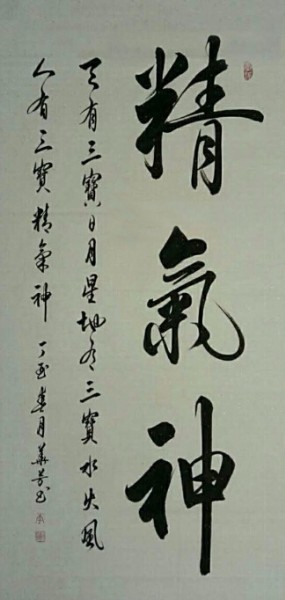 精氣神
天有三寶日月星地有三寶水火風
人有三寶精氣神 丁酉春月華芳書